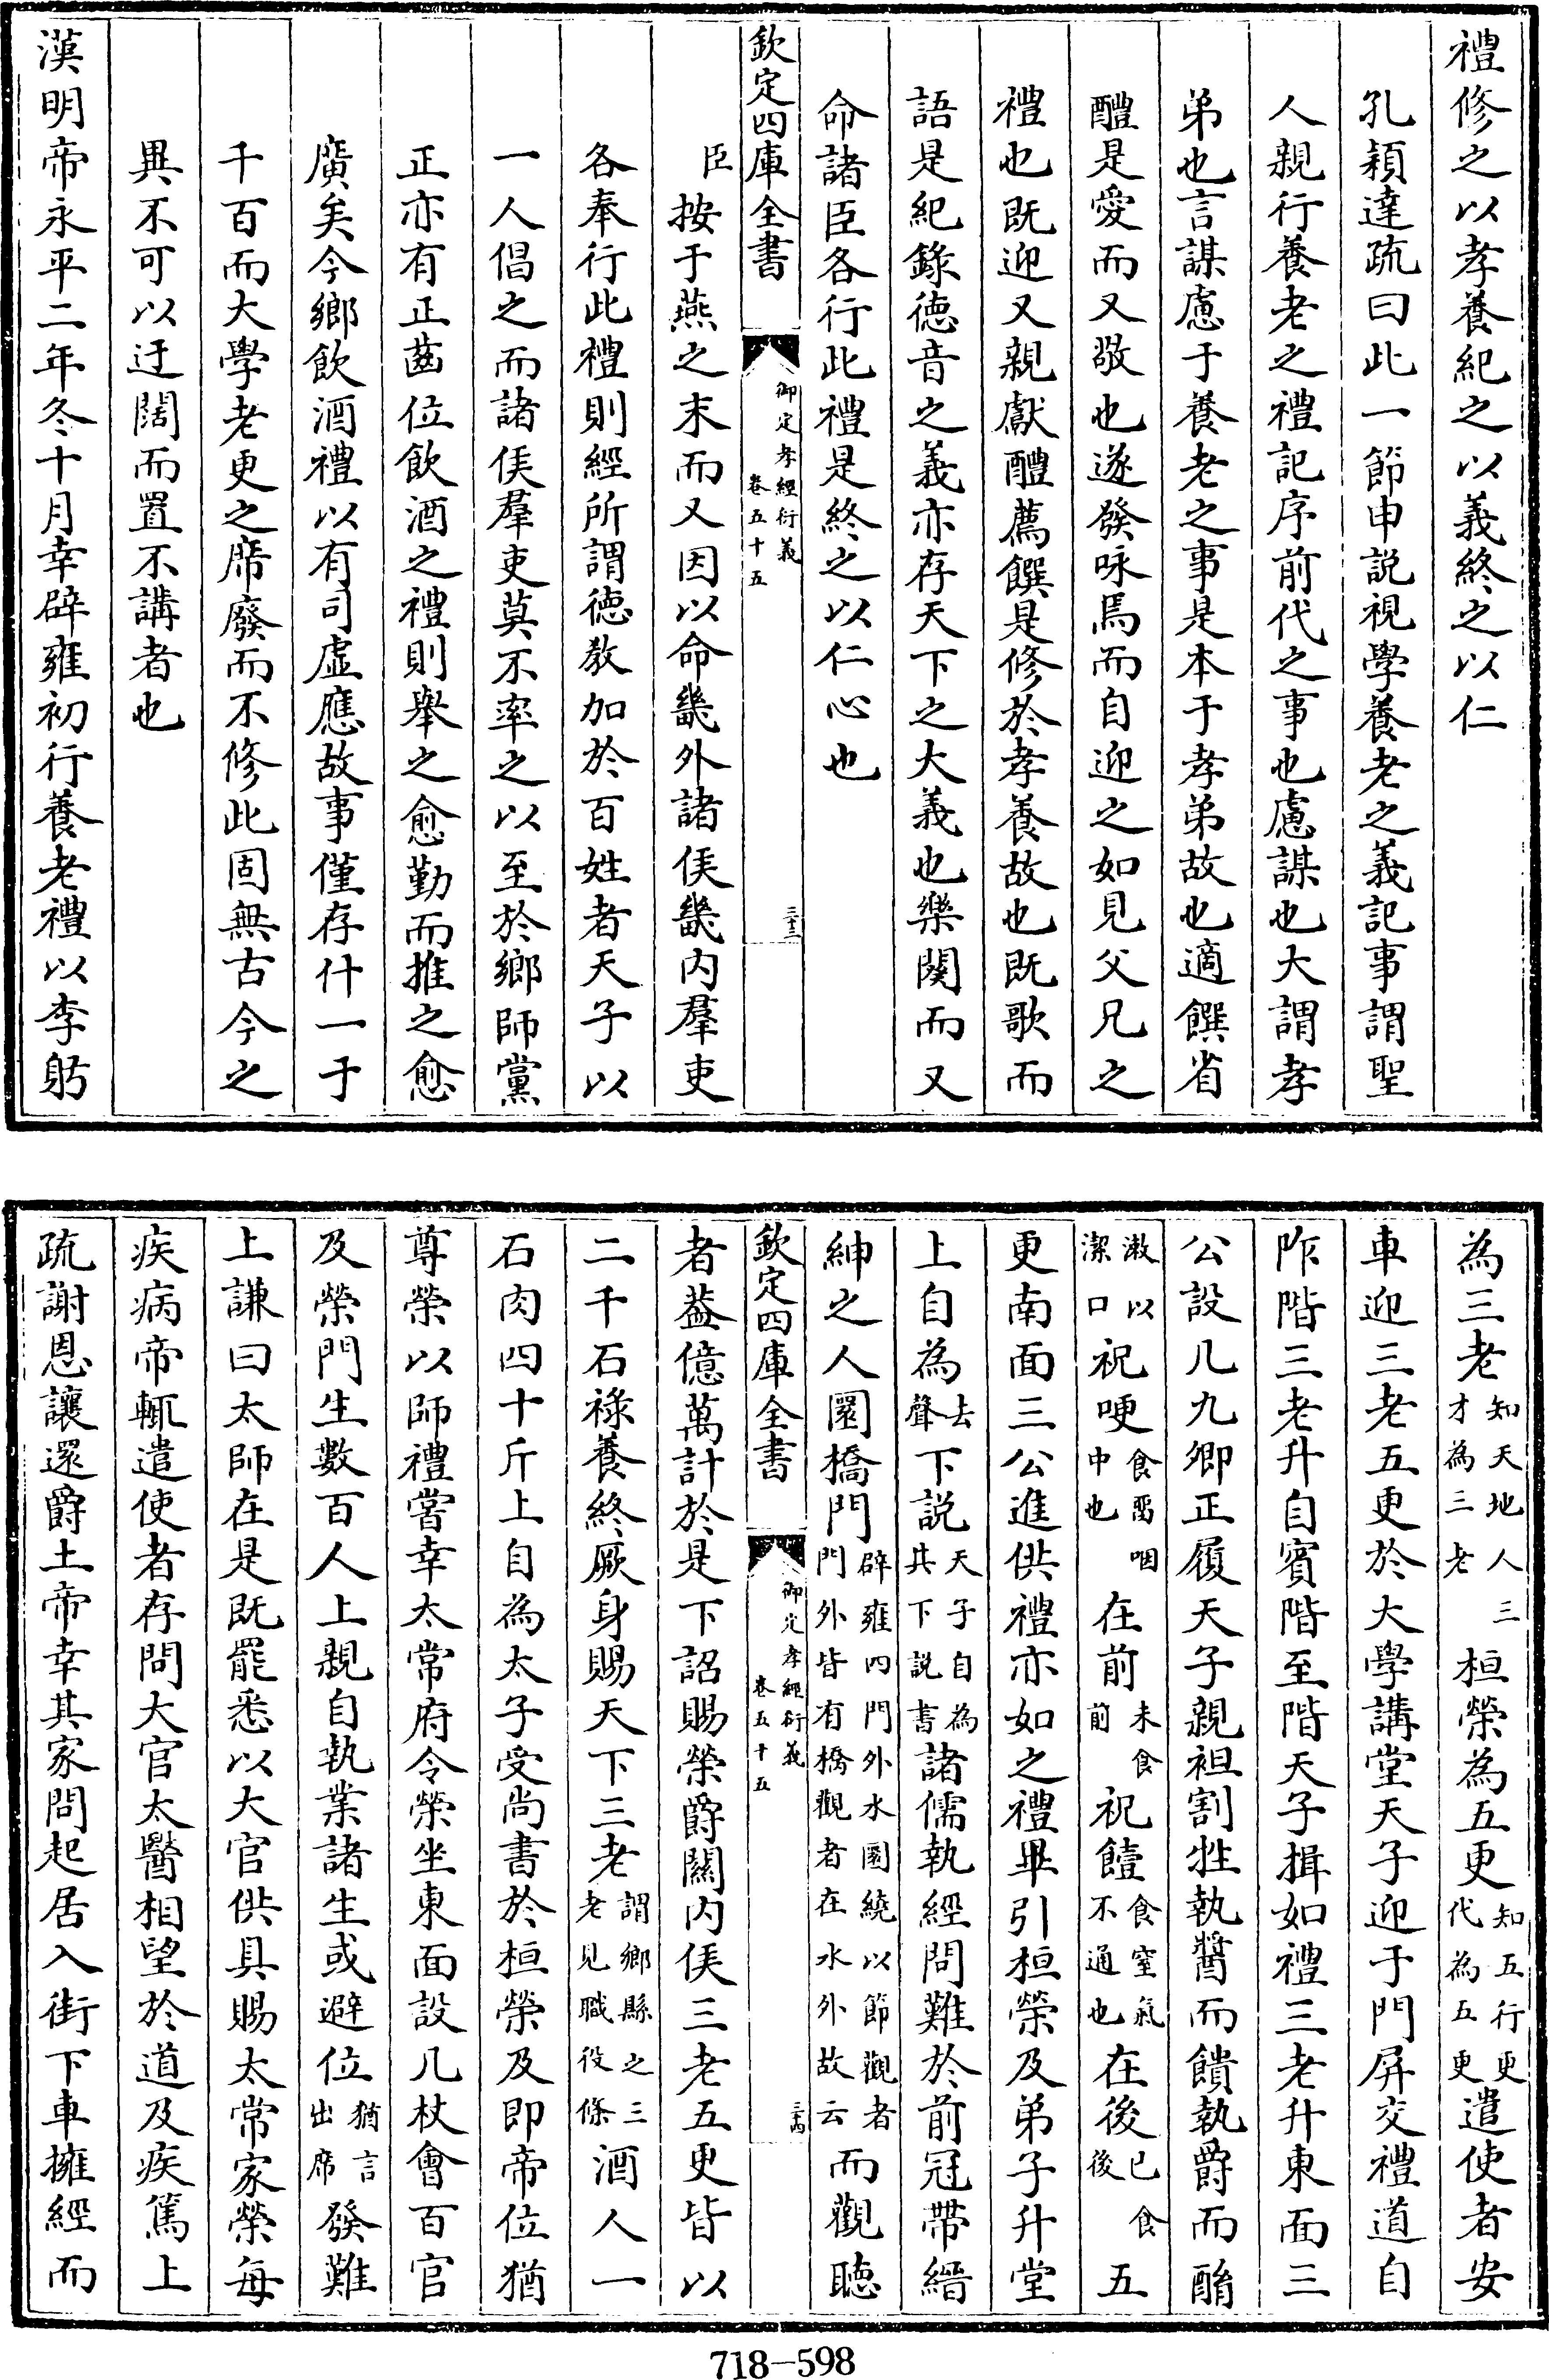 禮修之以孝養紀之以義終之以仁
孔穎達疏曰此一節申説視學養老之義記事謂聖
人親行養老之禮記序前代之事也慮謀也大謂孝
弟也言謀慮于養老之事是本于孝弟故也適饌省
醴是愛而又敬也遂發咏焉而自迎之如見父兄之
禮也既迎又親獻醴薦饌是修於孝養故也既歌而
語是紀錄德音之義亦存天下之大義也樂闋而又
命諸臣各行此禮是終之以仁心也
欽定四庫全書
御定孝經衍義
卷五十五
三十三
臣按于燕之末而又因以命畿外諸侯畿内羣吏
各奉行此禮則經所謂德教加於百姓者天子以
一人倡之而諸侯羣吏莫不率之以至於鄉師黨
正亦有正齒位飲酒之禮則舉之愈勤而推之愈
廣矣今鄉飲酒禮以有司虛應故事僅存什一于
千百而大學老更之席廢而不修此固無古今之
異不可以迂闊而置不講者也
漢明帝永平二年冬十月幸辟雍初行養老禮以李躬
為三老知天地人三才為三老桓榮為五更知五行更代為五更遣使者安
車迎三老五更於大學講堂天子迎于門屏交禮道自
阼階三老升自賓階至階天子揖如禮三老升東面三
公設几九卿正履天子親袒割牲執醬而饋執爵而酳
漱以潔口祝哽食畱咽中也在前未食前祝饐食窒氣不通也在後已食後五
更南面三公進供禮亦如之禮畢引桓榮及弟子升堂
上自為去聲下説天子自為其下説書諸儒執經問難於前冠帶縉
紳之人圜橋門辟雍四門外水圜繞以節觀者門外皆有橋觀者在水外故云而觀聽
欽定四庫全書
御定孝經衍義
卷五十五
三十四
者葢億萬計於是下詔賜榮爵關内侯三老五更皆以
二千石祿養終厥身賜天下三老謂鄉縣之三老見職役條酒人一
石肉四十斤上自為太子受尚書於桓榮及即帝位猶
尊榮以師禮嘗幸太常府令榮坐東面設几杖會百官
及榮門生數百人上親自執業諸生或避位猶言出席發難
上謙曰太師在是既罷悉以大官供具賜太常家榮每
疾病帝輒遣使者存問大官太醫相望於道及疾篤上
疏謝恩讓還爵土帝幸其家問起居入街下車擁經而
718-598